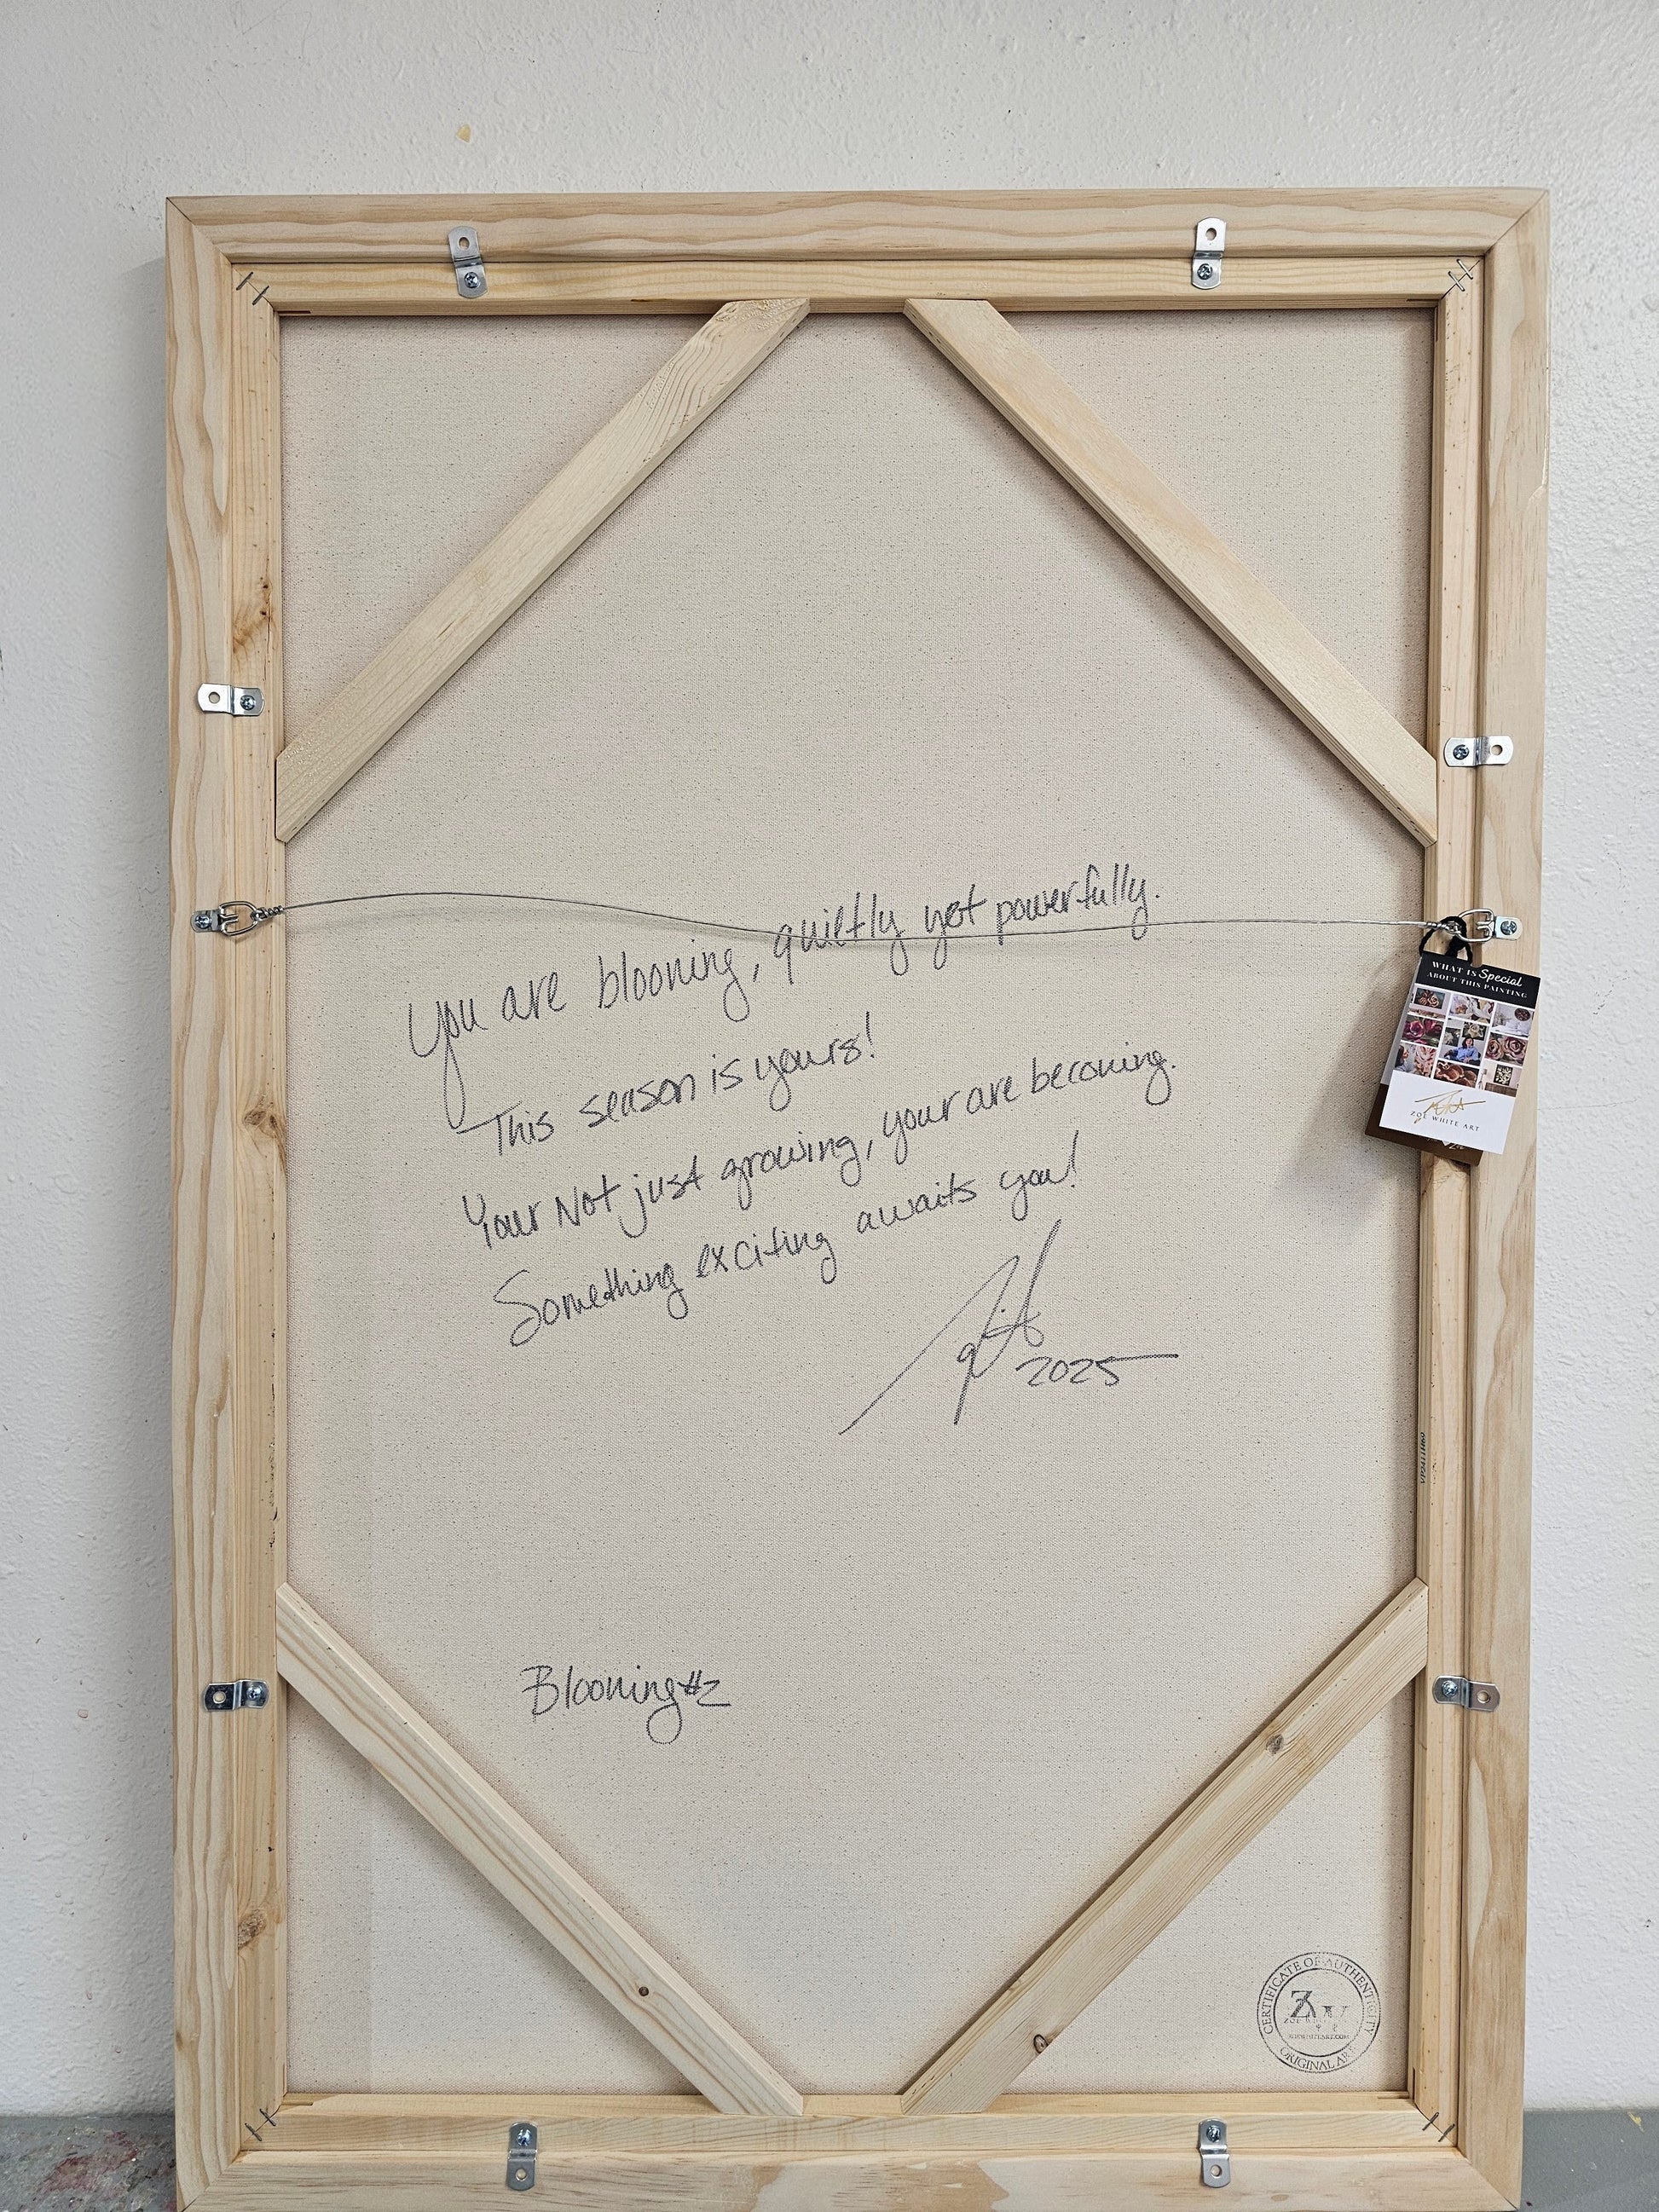 You are blooming, quietly yet powerfully.
This season is yours!
Your Not just growing, your are becoming.
Something exciting awaits you!
2025
WHAT IS Special
ABOUT THIS PAINTING
ZOE WHITE ART
Blooming #2
CERTIFICATE OF AUTHENTICITY
ZW
ORIGINAL ART